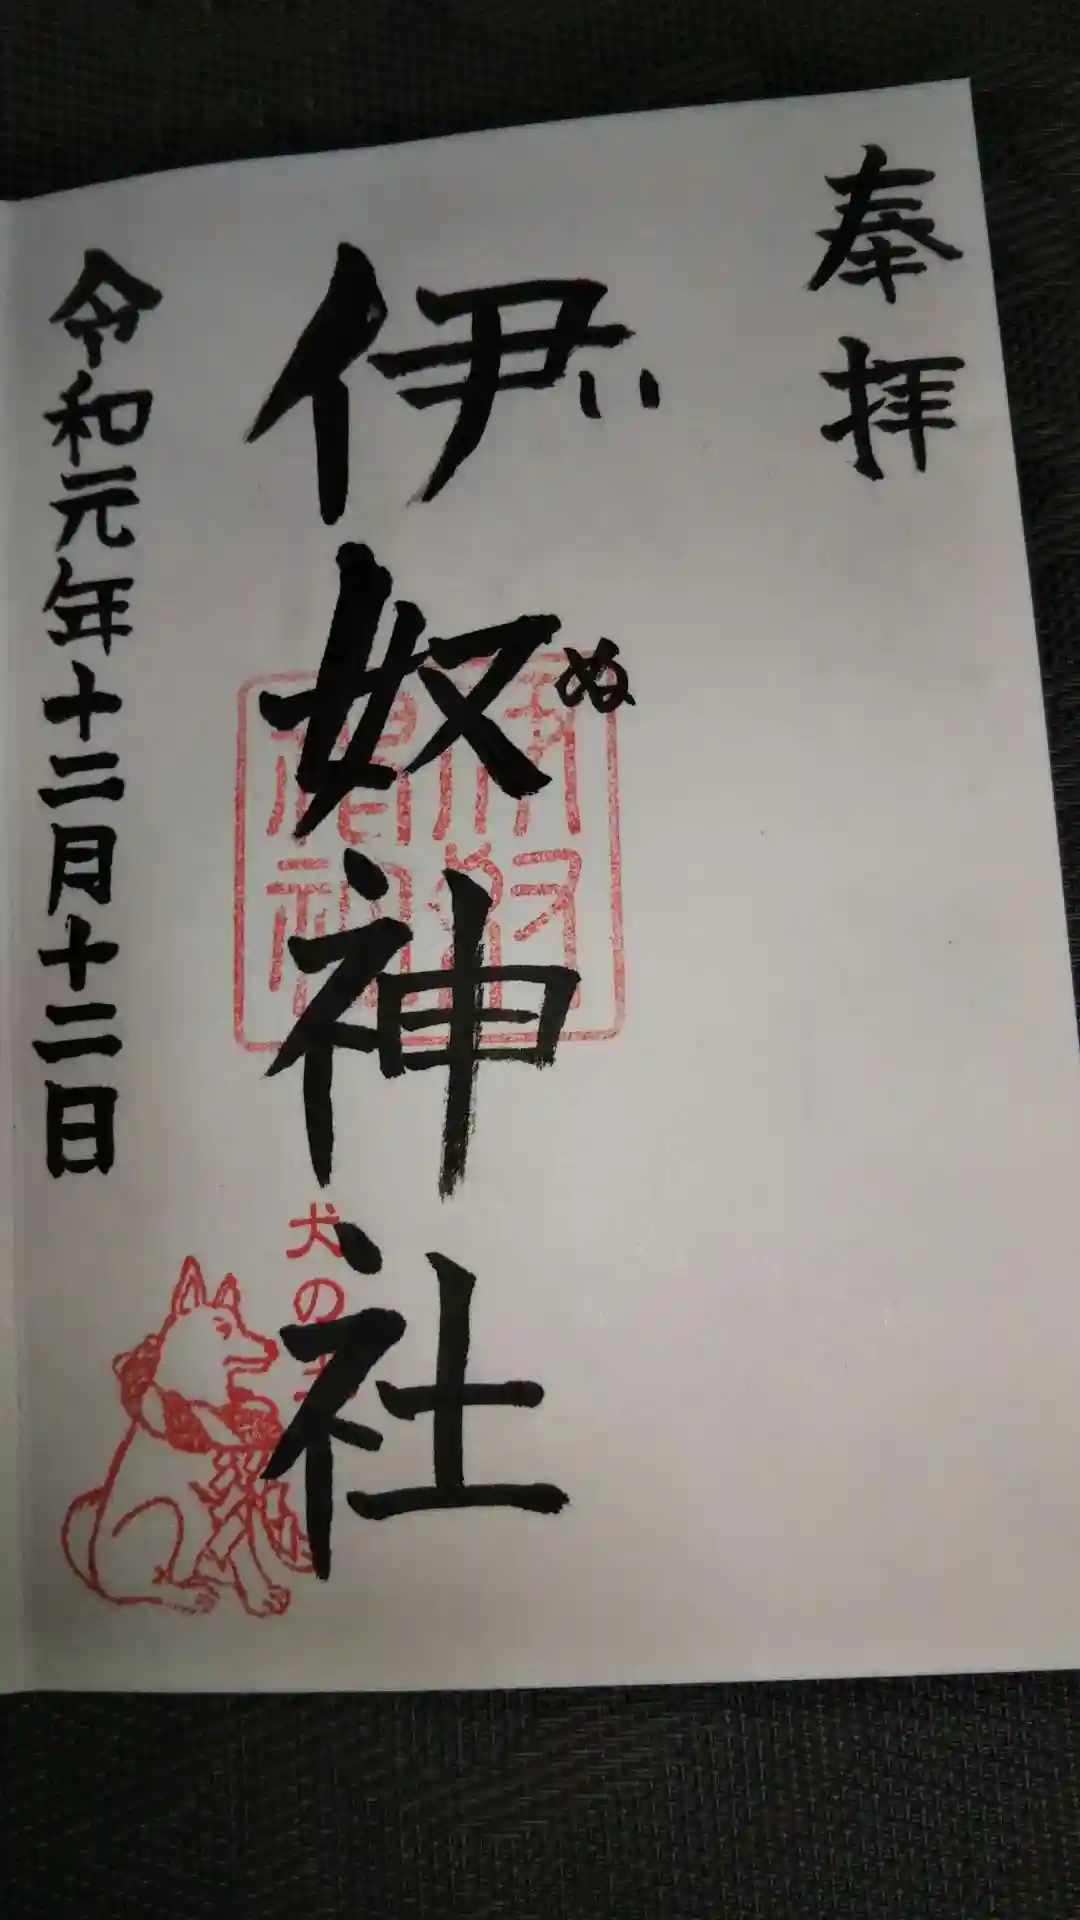 奉拝
伊奴神社
いぬ
令和元年十二月十二日
犬の王